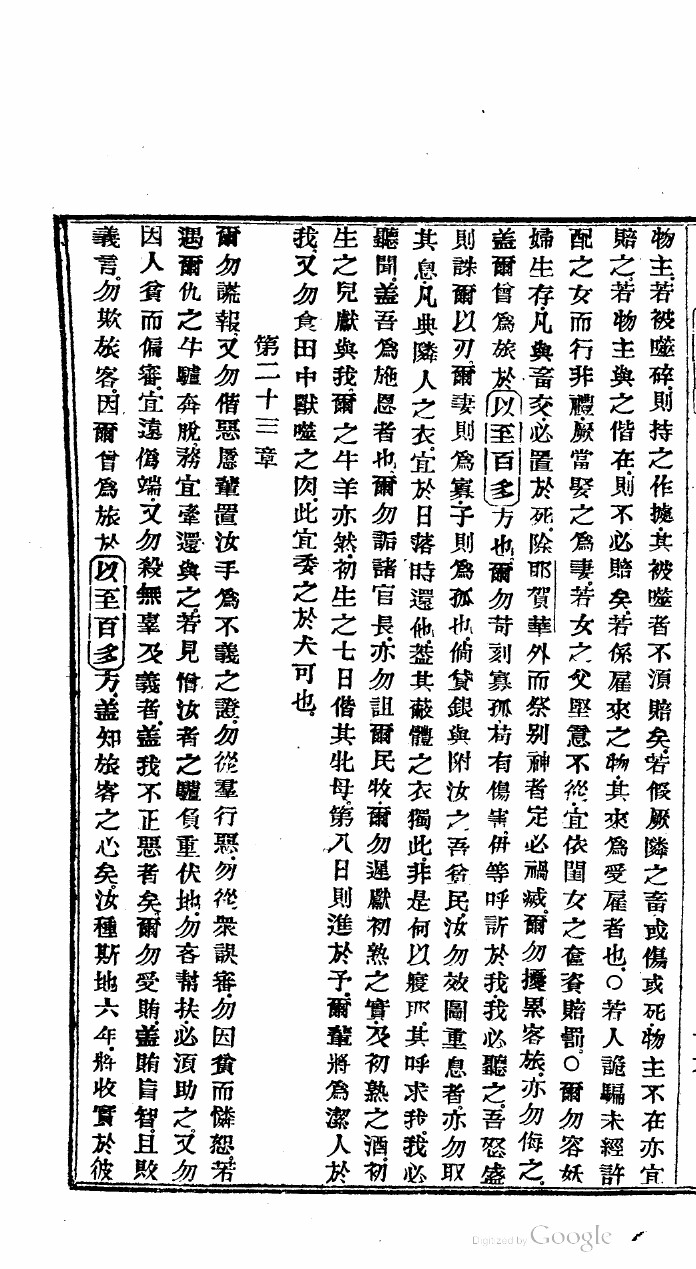 物主.若被噬碎.則持之作據.其被噬者不湏賠矣.若假厥隣之畜或傷或死.物主不在亦宜
賠之.若物主與之偕在.則不必賠矣.若係雇來之物.其來爲受雇者也.○若人詭騙未經許
配之女而行非禮.厥當娶之爲妻.若女之父堅意不從.宜依閨女之奩資賠罰.○爾勿容妖
婦生存.凡與畜交.必置於死.除耶賀華外而祭别神者定必禍滅.爾勿擾累客旅.亦勿侮之.
盖爾曾爲旅於以至百多方也.爾勿苛刻寡孤.苟有傷害.伊等呼訴於我.我必聽之.吾怒盛
則誅爾以刃.爾妻則爲寡.子則爲孤也.倘貸銀與附汝之吾貧民.汝勿效圖重息者.亦勿取
其息.凡典隣人之衣.宜於日落時還他.盖其蔽體之衣獨此.非是何以度耶.其呼求我.我必
聽聞.盖吾爲施恩者也.爾勿詬諸官長.亦勿詛爾民牧.爾勿遲獻初熟之實.及初熟之酒.初
生之兒獻與我.爾之牛羊亦然.初生之七日偕其牝母.第八日則進於予.爾輩將爲潔人於
我.又勿食田中獸噬之肉.此宜委之於犬可也.
第二十三章
爾勿謊報.又勿偕惡慝輩置汝手爲不義之證.勿從羣行惡.勿從衆訣審.勿因貧而憐恕.若
遇爾仇之牛驢奔脫.務宜牽還與之.若見憎汝者之驢負重伏地.勿吝幫扶.必湏助之.又勿
因人貧而偏審.宜遠僞端.又勿殺無辜及義者.盖我不正惡者矣.爾勿受賄.盖賄盲智.且敗
義言.勿欺旅客.因爾曾爲旅於以至百多方.盖知旅客之心矣.汝種斯地六年.將收實於彼
Digitized by Google